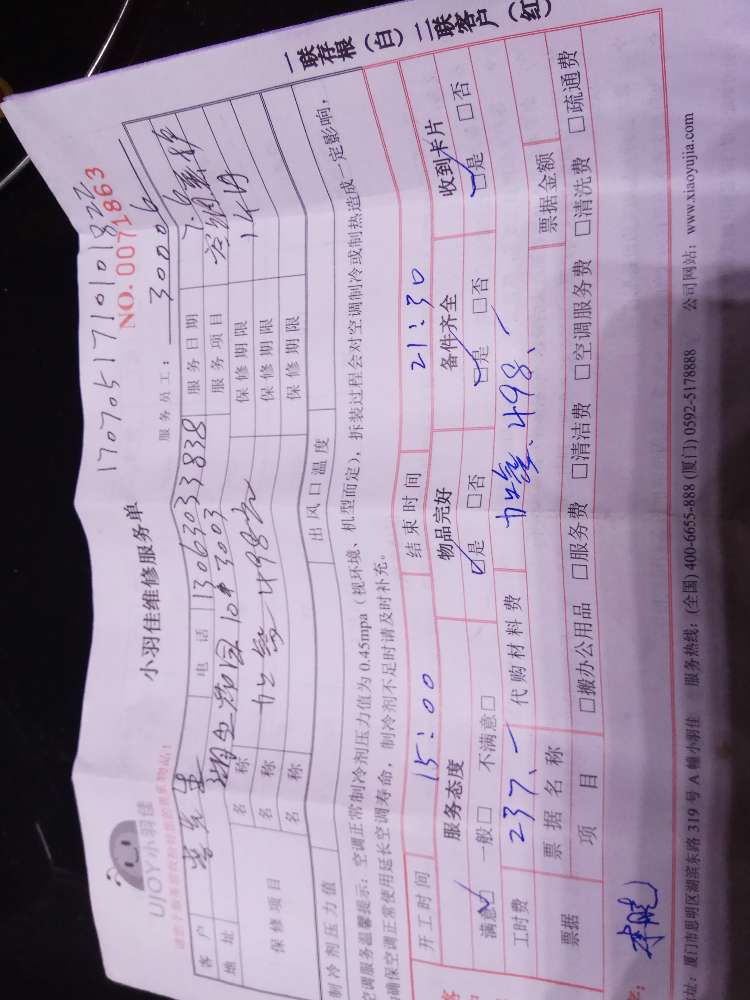 一联存根（白） 二联客户（红
170705171010182
NO. 0071863
小羽佳维修服务单
UJOY小羽佳
服务员工： 30006
客户 李先生 电话 13063033838 服务日期 7.6
地址 3003 服务项目
保修项目
名称 加氟 498元 保修期限
名称 保修期限
名称 保修期限
制冷剂压力值 出风口温度
空调服务温馨提示：空调正常制冷剂压力值为 0.45mpa（视环境、机型而定），拆装过程会对空调制冷或制热造成一定影响，
确保空调正常使用延长空调寿命，制冷剂不足时请及时补充。
开工时间 15:00 结束时间 21:30
服务态度 物品完好 备件齐全 收到卡片
满意□ 一般□ 不满意□ □是 □否 □是 □否 □是 □否
工时费 237、一 代购材料费 加氟、498、一
票据 票据名称 票据金额
项目 □搬办公用品 □服务费 □清洁费 □空调服务费 □清洗费 □疏通费
址：厦门市思明区湖滨东路 319 号 A 幢小羽佳 服务热线：(全国) 400-6655-888 (厦门) 0592-5178888 公司网站：www.xiaoyujia.com